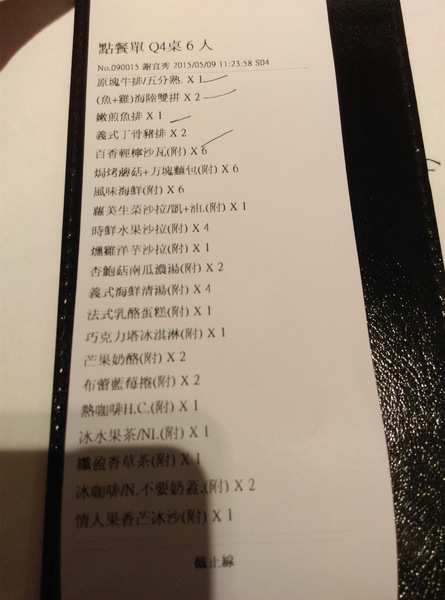 點餐單 Q4桌 6 人
No.090015 謝宜秀 2015/05/09 11:23:58 S04
原塊牛排/五分熟. X 1
(魚+雞)海陸雙拼 X 2
嫩煎魚排 X 1
義式丁骨豬排 X 2
百香輕檸沙瓦(附) X 6
焗烤蘑菇+方塊麵包(附) X 6
風味海鮮(附) X 6
蘿美生菜沙拉/凱+油.(附) X 1
時鮮水果沙拉(附) X 4
燻雞洋芋沙拉(附) X 1
杏鮑菇南瓜濃湯(附) X 2
義式海鮮清湯(附) X 4
法式乳酪蛋糕(附) X 1
巧克力塔冰淇淋(附) X 1
芒果奶酪(附) X 2
布蕾藍莓捲(附) X 2
熱咖啡H.C.(附) X 1
冰水果茶/NI.(附) X 1
纖盈香草茶(附) X 1
冰咖啡/N.不要奶蓋.(附) X 2
情人果香芒冰沙(附) X 1
截止線